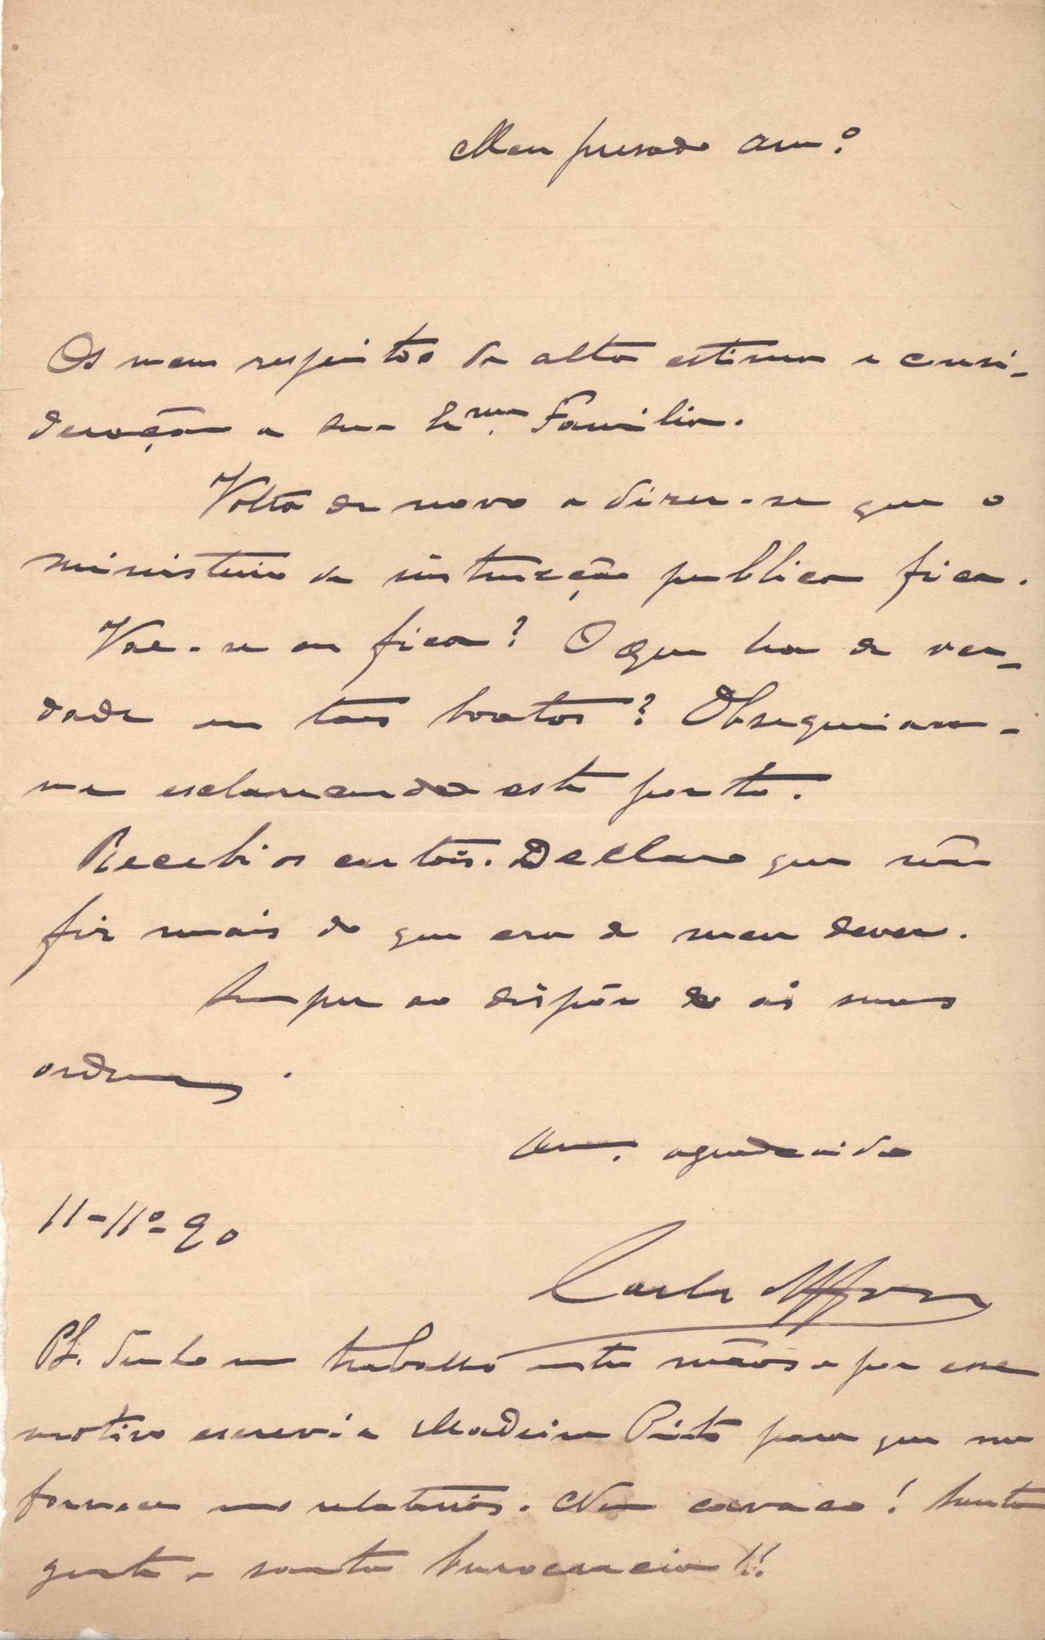 Meu presado Am.º
Os meus respeitos de alta estima e consi-
deração a sua Ex.ma Familia.
Volta de novo a dizer-se que o
ministerio da instrucção publica fica.
Vae-se ou fica? O que ha de ver-
dade em taes boatos? Obsequiar-
me esclarecendo este ponto.
Recebi os cartões. Declaro que não
fiz mais do que era de meu dever.
Sempre ao dispôr de as suas
ordens.
Am. agradecido
11-11º-90
PS. Tenho um trabalho entre mãos e por esse
motivo escrevi a Madeira Pinto para que me
fornecesse uns relatorios. Nem cavaco! Santa
gente e santa burocracia!!